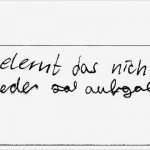 elernt das nich
eder aufgal